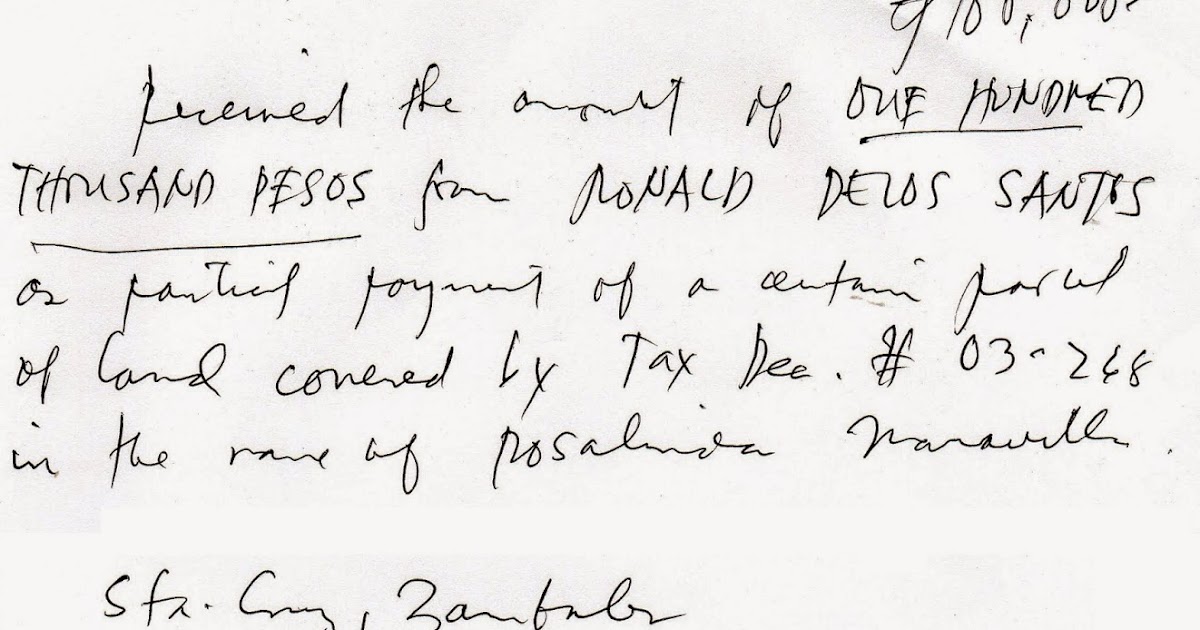 ₱100,000-
Received the amount of ONE HUNDRED
THOUSAND PESOS from RONALD DELOS SANTOS
as partial payment of a certain parcel
of land covered by Tax Dec. # 03-268
in the name of Rosalinda Maravilla.
Sta. Cruz, Zambales